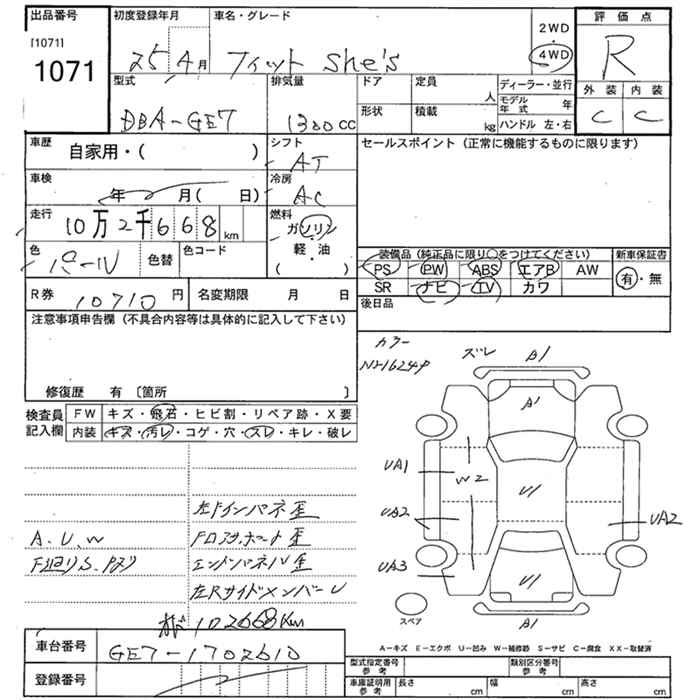 出品番号 初度登録年月 車名・グレード 評価点
[1071] 1071 25年4月 フィット She's 2WD 4WD R
型式 排気量 ドア 定員 人 ディーラー・並行 外装 内装
DBA-GE7 1300cc 形状 積載 kg モデル年式 年 ハンドル 左・右 C C
車歴 自家用・( ) シフト AT セールスポイント (正常に機能するものに限ります)
車検 年 月( 日) 冷房 AC
走行 10万2千668km 燃料 ガソリン・軽油 ( )
色 パール 色替 色コード
装備品 (純正品に限り○をつけてください) 新車保証書
PS PW ABS エアB AW 有・無
SR ナビ TV カワ
R券 10710円 名変期限 月 日 後日品
注意事項申告欄 (不具合内容等は具体的に記入して下さい)
修復歴 有 〔箇所 〕
検査員記入欄 FW キズ・飛石・ヒビ割・リペア跡・X要
内装 キズ・汚レ・コゲ・穴・スレ・キレ・破レ
カラー ズレ B1
NH624P
A1
UA1 W2 U1
UA2 UA2
UA3 U1
スペア B1
A.U.W
左Fインパネ歪
Fロアサポート歪
エンドパネル歪
左RサイドメンバーU
102668Km
A-キズ E-エクボ U-凹み W-補修跡 S-サビ C-腐食 XX-取替済
車台番号 GE7-1702610
登録番号
型式指定番号 参考 類別区分番号 参考
車庫証明用 参考 長さ cm 幅 cm 高さ cm